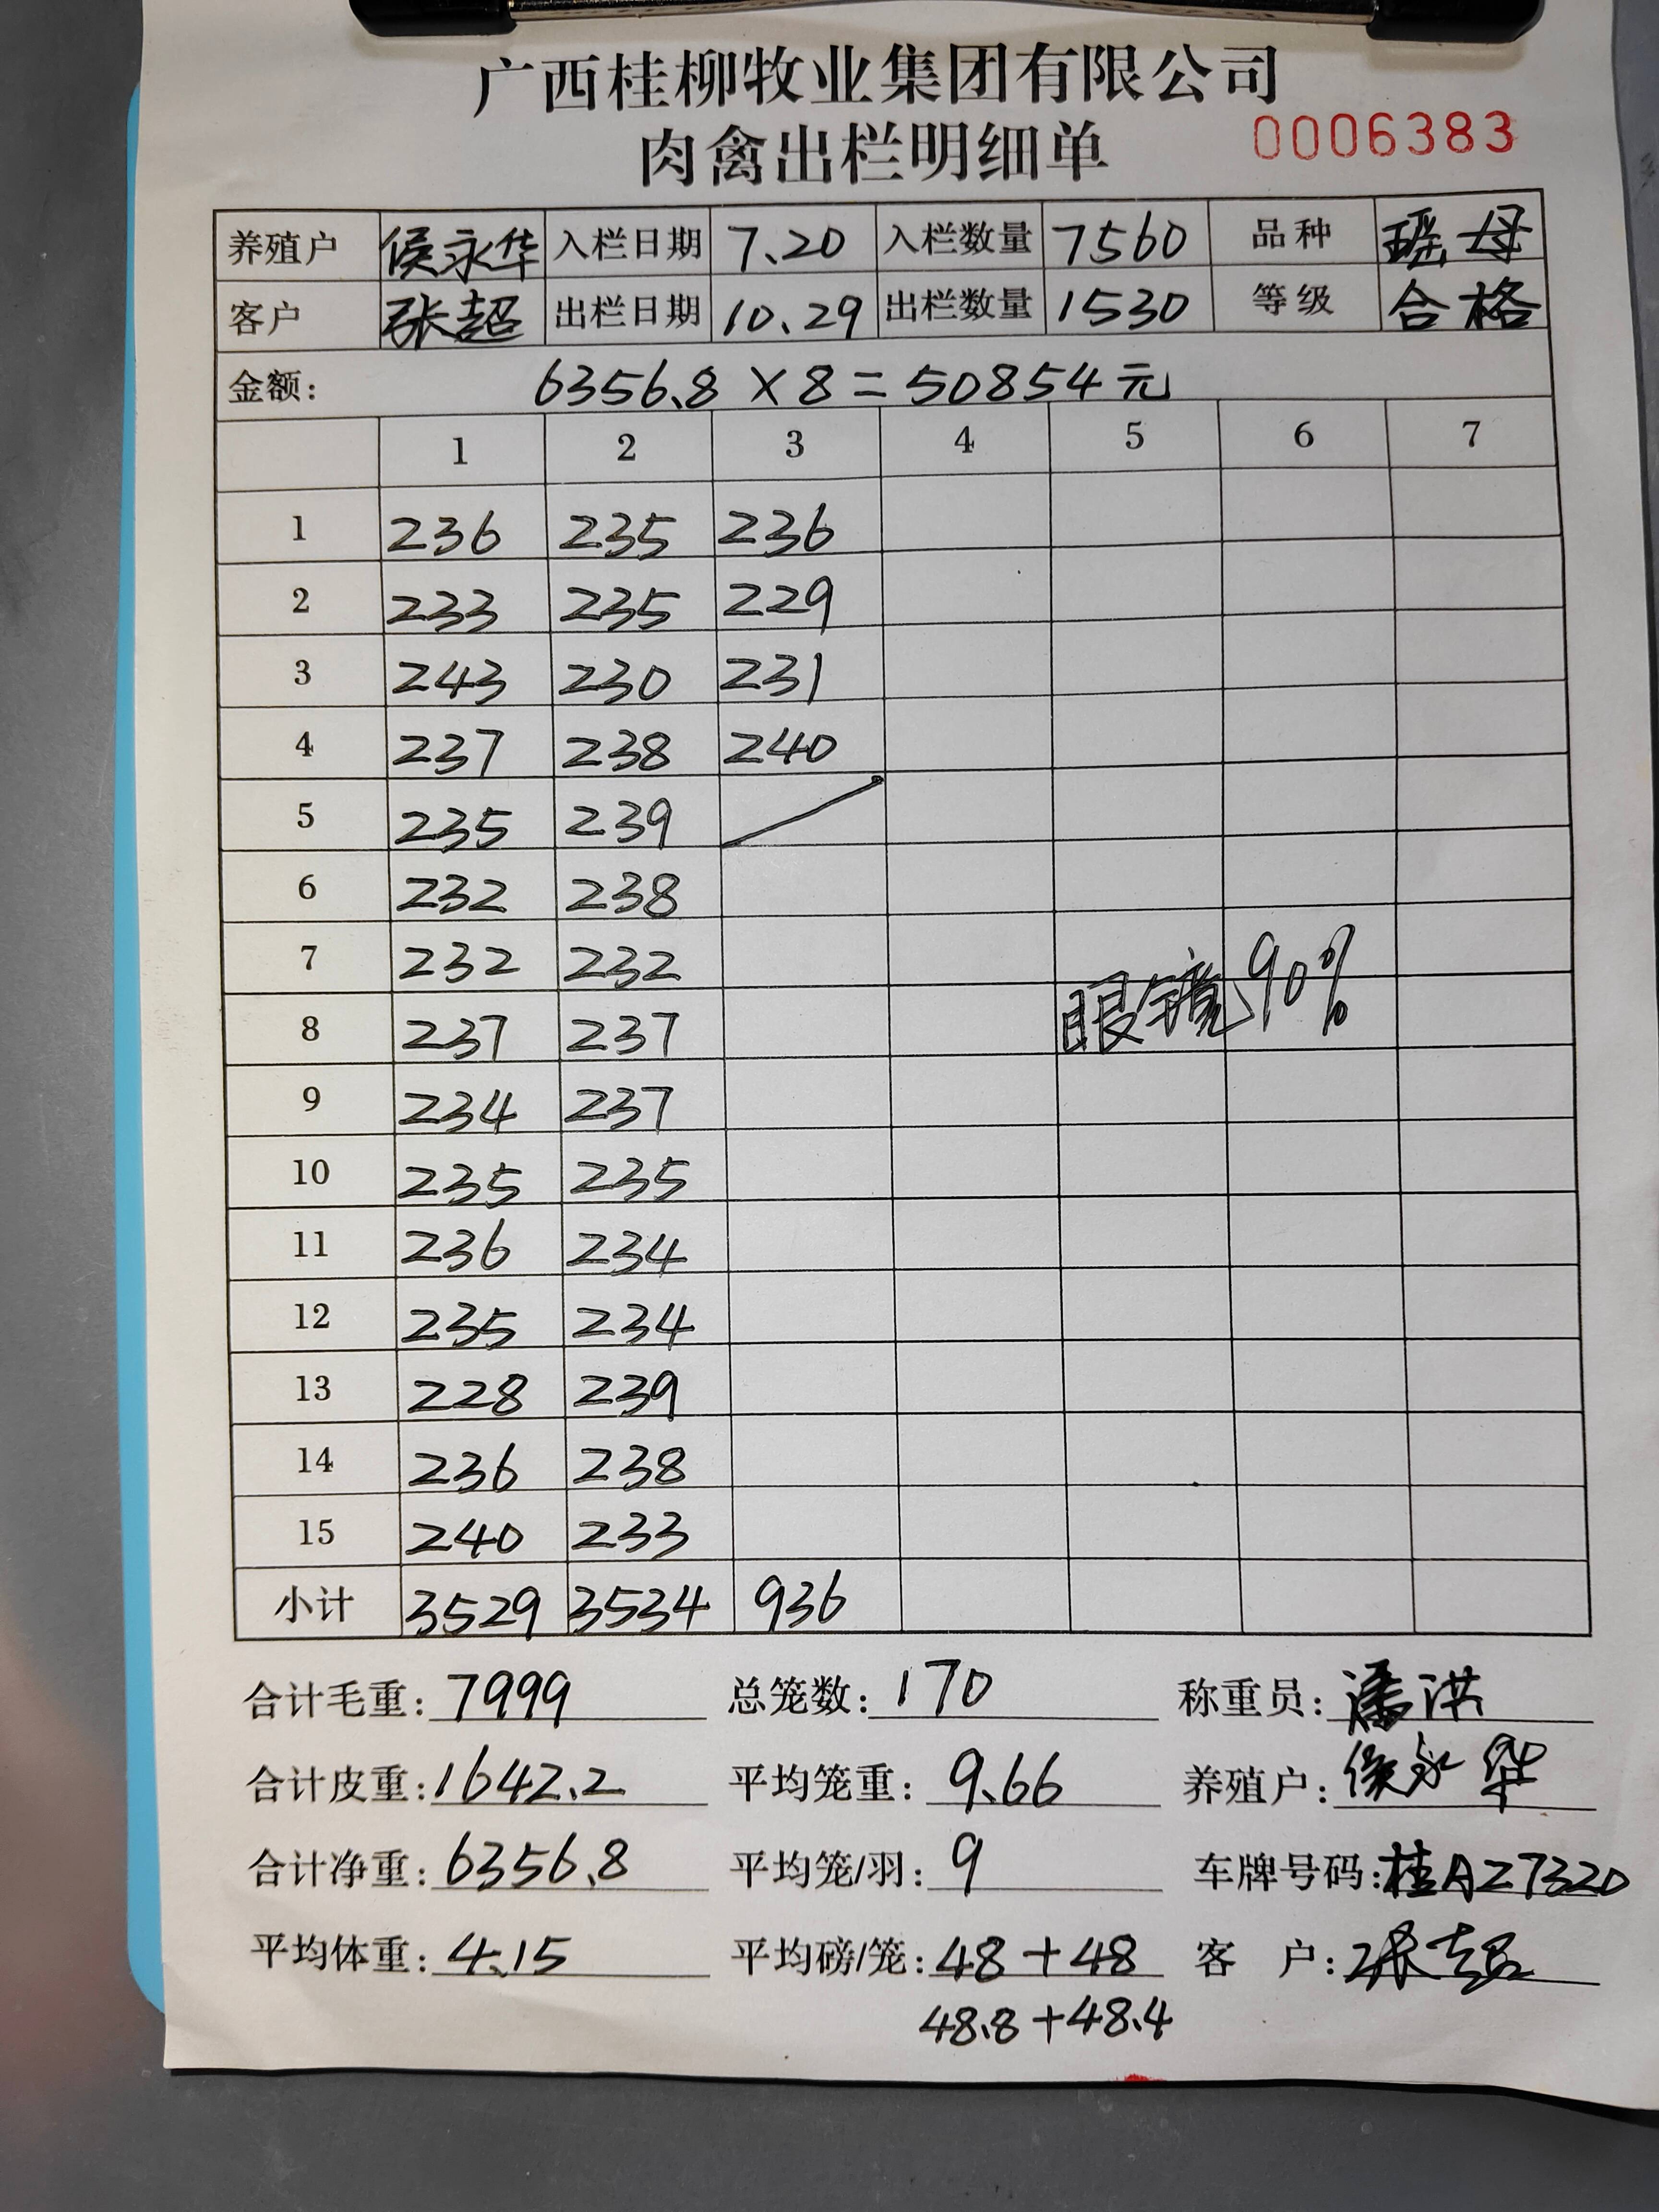 广西桂柳牧业集团有限公司
肉禽出栏明细单 0006383
养殖户 侯永华 入栏日期 7.20 入栏数量 7560 品种 瑶母
客户 张超 出栏日期 10.29 出栏数量 1530 等级 合格
金额: 6356.8 × 8 = 50854元
1 2 3 4 5 6 7
1 236 235 236
2 233 235 229
3 243 230 231
4 237 238 240
5 235 239
6 232 238
7 232 232
眼镜90%
8 237 237
9 234 237
10 235 235
11 236 234
12 235 234
13 228 239
14 236 238
15 240 233
小计 3529 3534 936
合计毛重: 7999 总笼数: 170 称重员: 潘洪
合计皮重: 1642.2 平均笼重: 9.66 养殖户: 侯永华
合计净重: 6356.8 平均笼/羽: 9 车牌号码: 桂AZ7320
平均体重: 4.15 平均磅/笼: 48+48 客 户: 张超
48.8+48.4